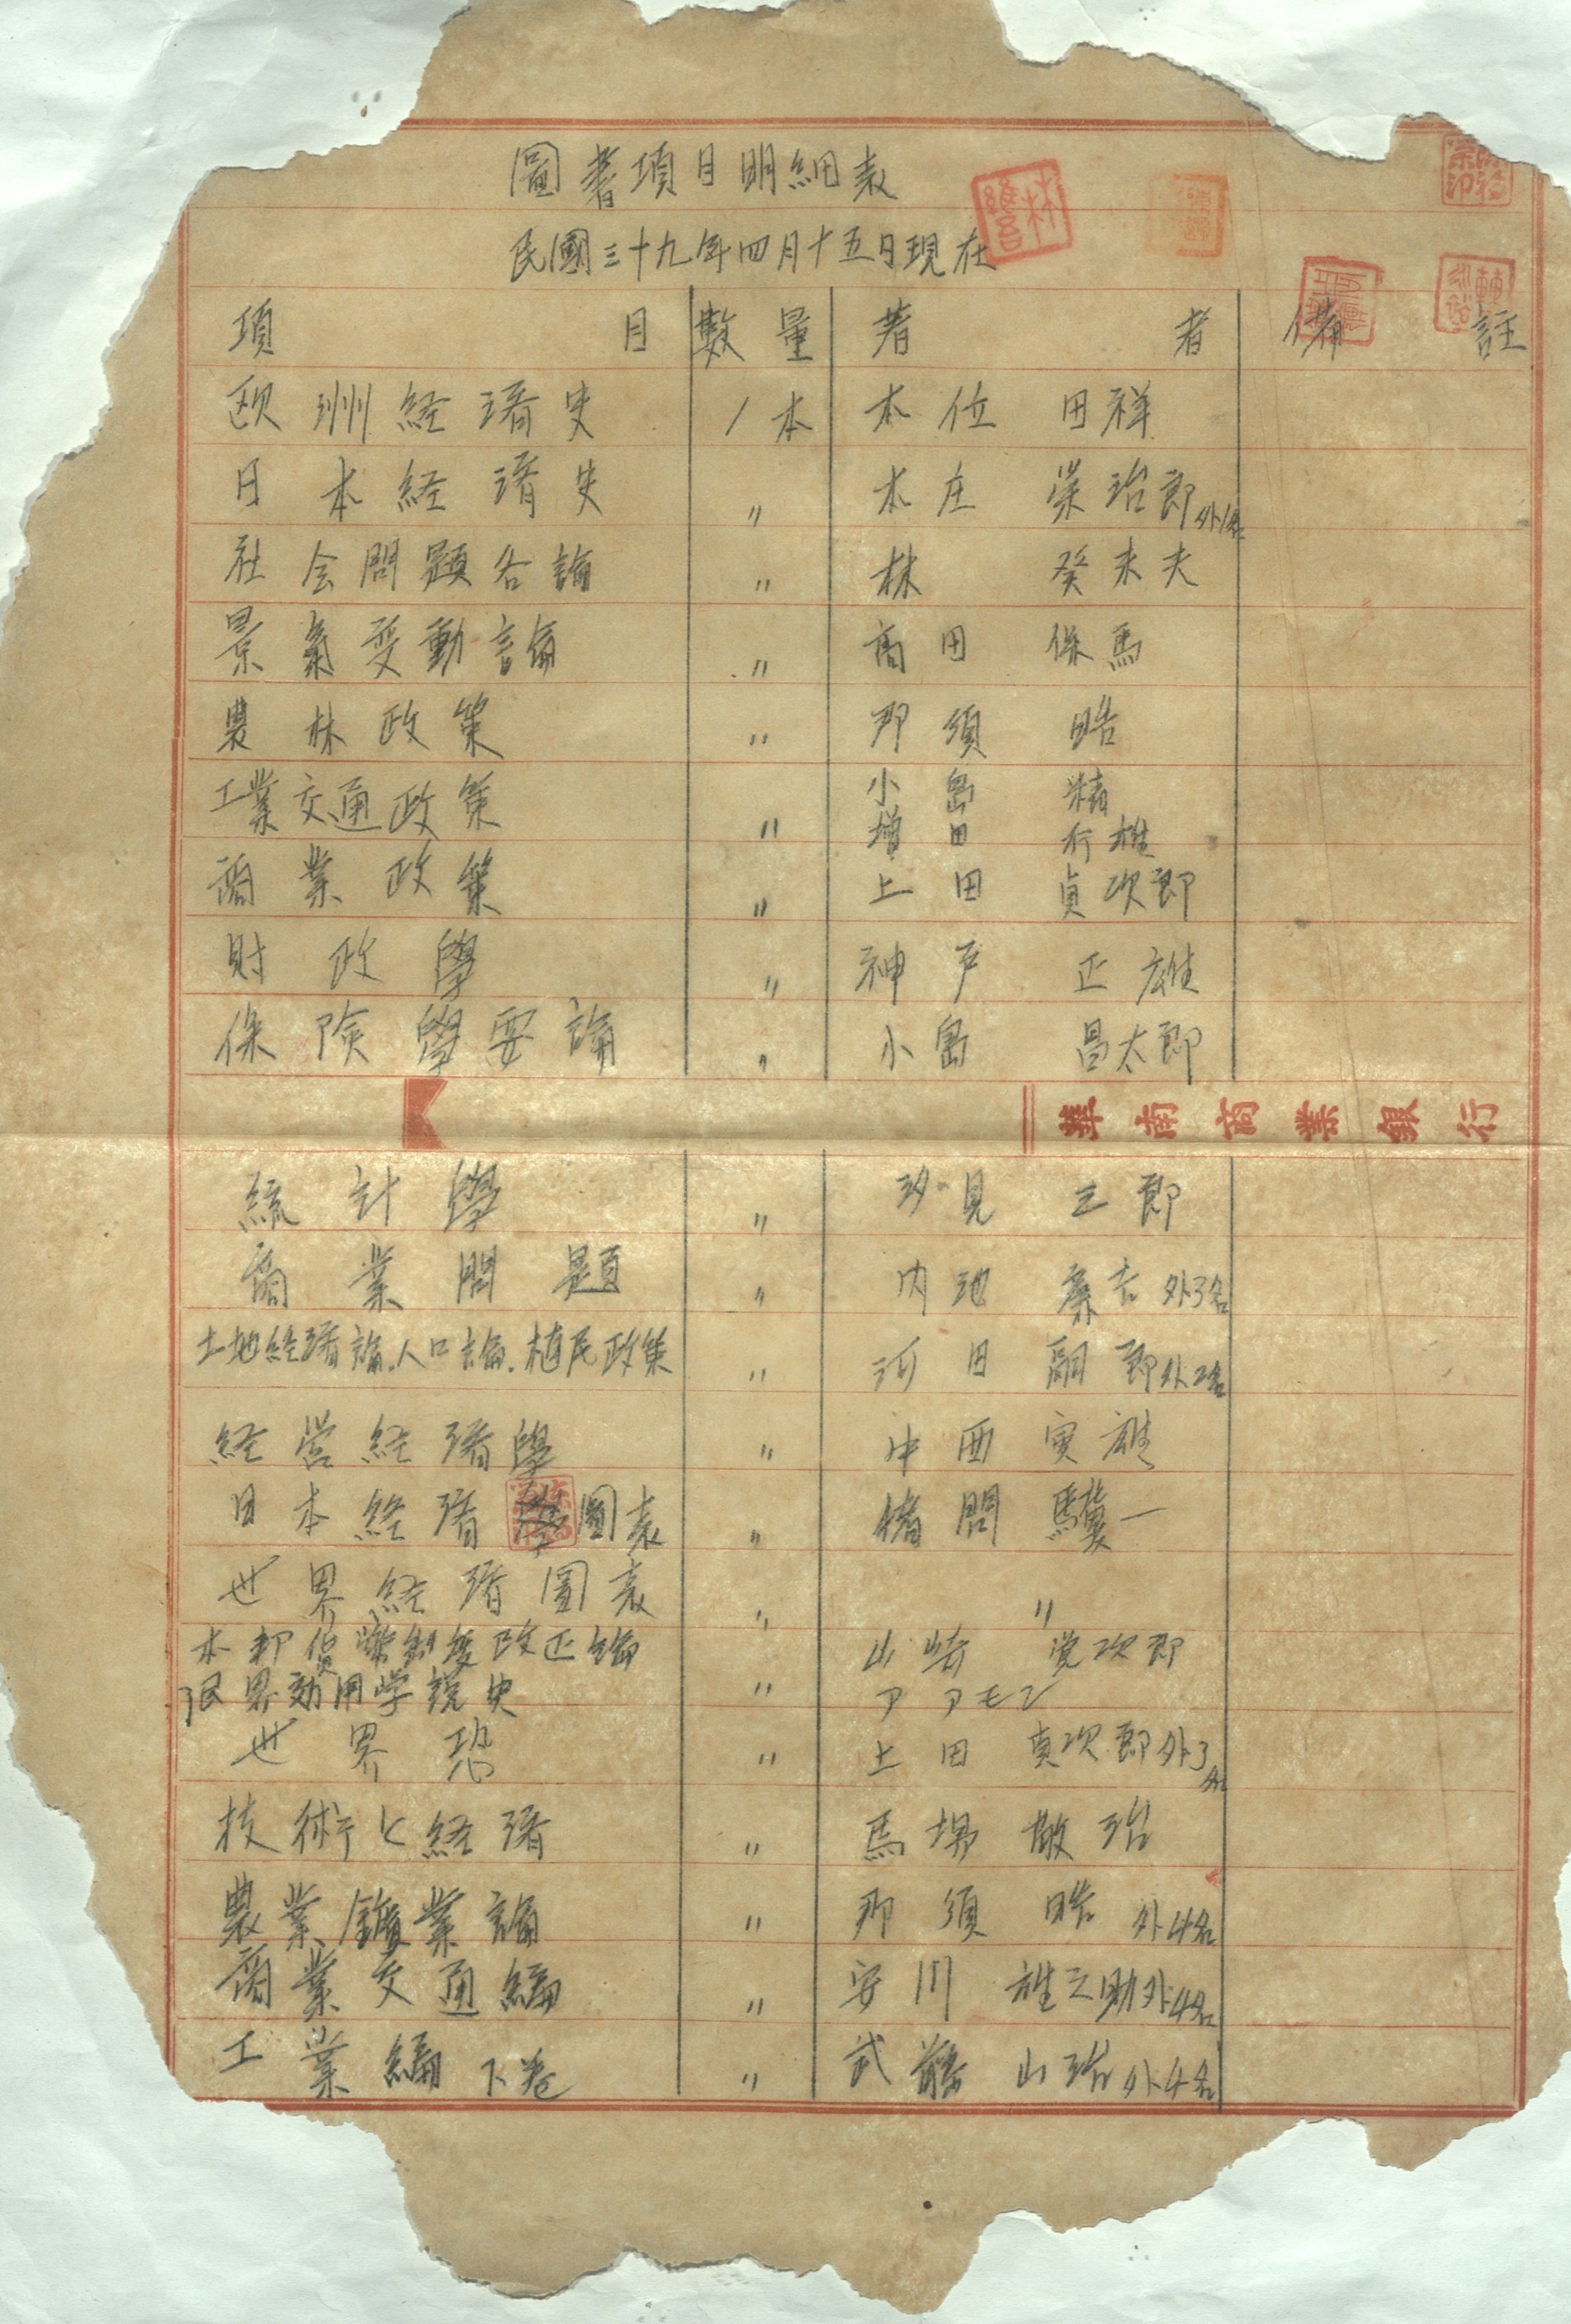 圖書項目明細表
民國三十九年四月十五日現在
項目 數量 著者 備註
欧洲経済史 1本 本位田祥
日本経済史 〃 本庄栄治郎外1名
社会問題各論 〃 林癸未夫
景氣変動論 〃 高田保馬
農林政策 〃 那須晧
工業交通政策 〃 小島精
増田
商業政策 〃 上田貞次郎
財政學 〃 神戸正雄
保険學要論 〃 小島昌太郎
華南商業銀行
統計學 〃 汐見三郎
商業問題 〃 内池廉吉外3名
土地経済論.人口論.植民政策 〃 河田嗣郎外2名
経営経済學 〃 中西寅雄
日本経済圖表 〃 猪間驥一
世界経済圖表 〃 〃
本邦貨幣制度改正論 山崎覚次郎
限界効用学説史 〃 アアモン
世界恐 〃 上田貞次郎外3名
技術と経済 〃 馬場敬治
農業鑛業論 〃 那須晧外4名
商業交通編 〃 安川雄之助外4名
工業編下巻 〃 武藤山治外4名